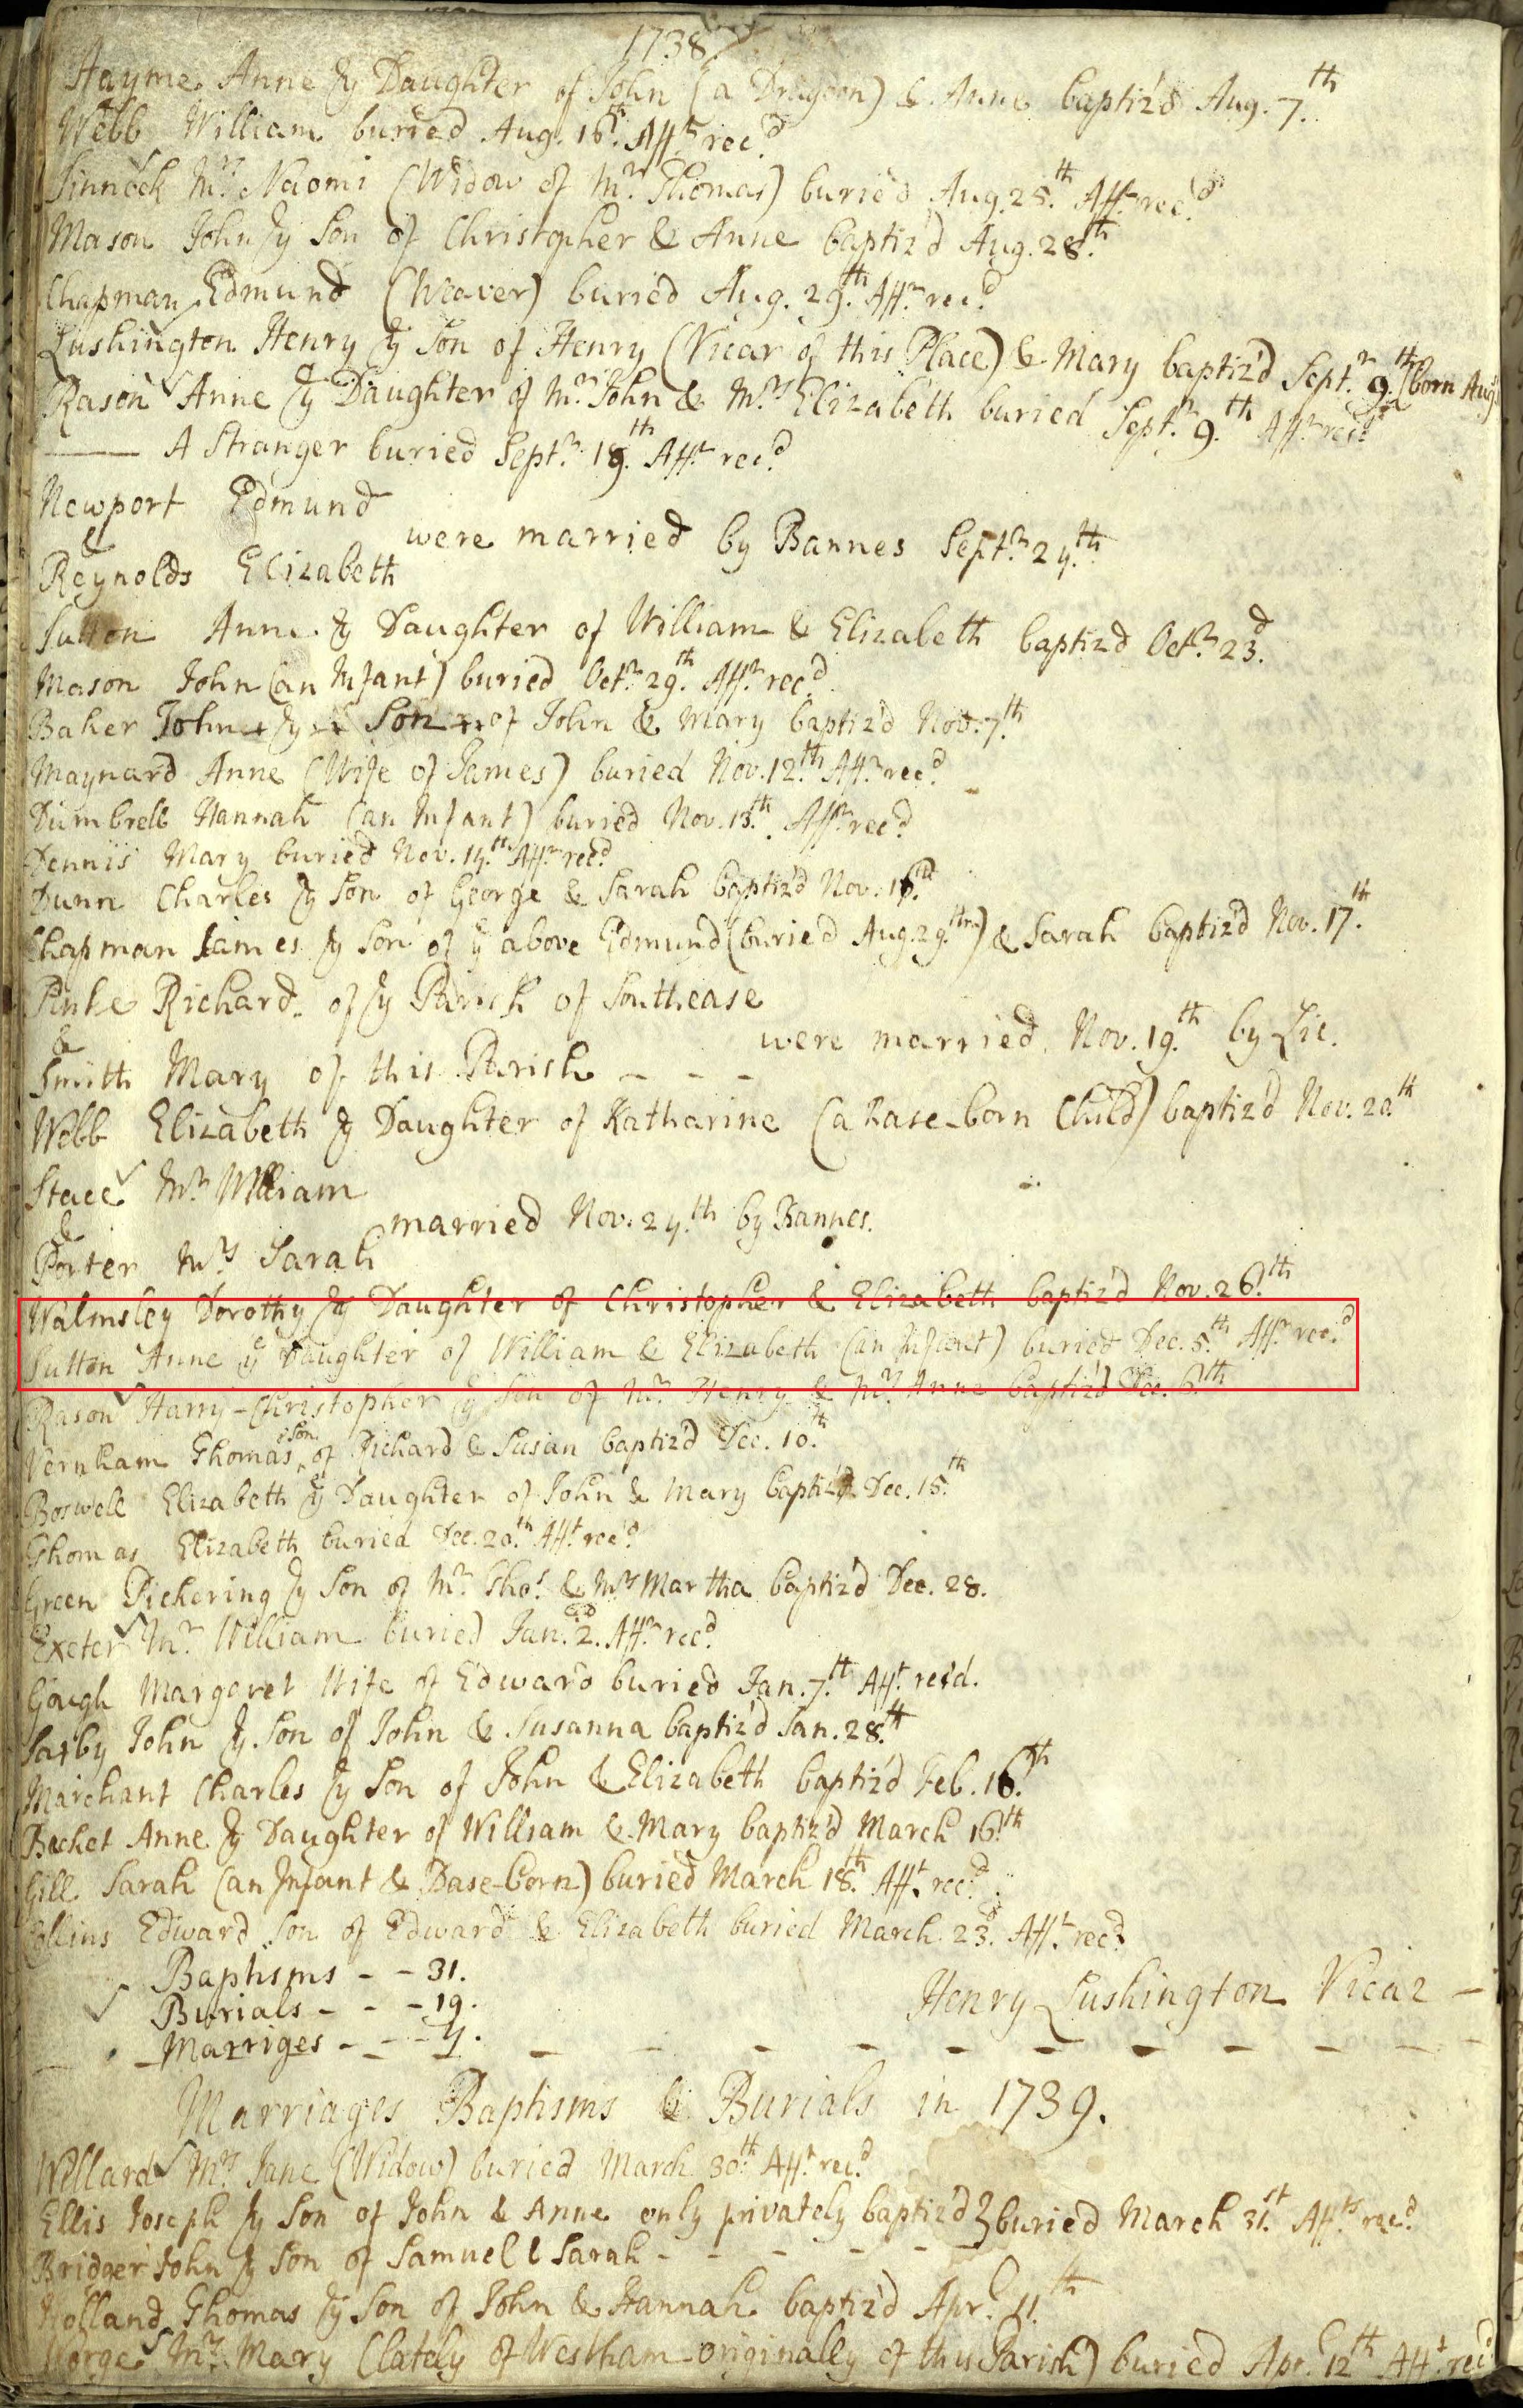 1738
Hayme Anne ye Daughter of John (a Dragoon) & Anne baptiz'd Aug. 7.th
Webb William buried Aug. 16.th Afft rec.d
Sinnock Mrs. Naomi (Widow of Mr. Thomas) buried Aug. 25.th Affr. rec.d
Mason John ye Son of Christopher & Anne baptiz'd Aug. 28.th
Chapman Edmund (Weaver) buried Aug. 29.th Affr. rec.d
Lushington Henry ye Son of Henry (Vicar of this Place) & Mary baptiz'd Sept.r 9.th (born Aug
Rason Anne ye Daughter of Mr. John & Mrs. Elizabeth buried Sept.r 9.th Affr. rec.d
—— A Stranger buried Sept.r 19.th Affr. rec.d
Newport Edmund
& were married by Bannes Sept.r 24.th
Reynolds Elizabeth
Sutton Anne ye Daughter of William & Elizabeth baptiz'd Oct.r 23.d
Mason John (an Infant) buried Oct.r 29.th Affr. rec.d
Baker John ye Son of John & Mary baptiz'd Nov. 7.th
Maynard Anne (Wife of James) buried Nov. 12.th Affr. rec.d
Dumbrell Hannah (an Infant) buried Nov. 13.th Affr. rec.d
Dennis Mary buried Nov. 14.th Affr. rec.d
Dunn Charles ye Son of George & Sarah baptiz'd Nov. 16.th
Chapman James ye Son of ye above Edmund (buried Aug. 29.th) & Sarah baptiz'd Nov. 17.th
Pinke Richard of ye Parish of Southease
& were married Nov. 19.th by Lic.
Smith Mary of this Parish - - -
Webb Elizabeth ye Daughter of Katharine (a Base-born Child) baptiz'd Nov. 20th
Stace Mr. William
& married Nov. 24.th by Bannes.
Porter Mrs. Sarah
Walmsley Dorothy ye Daughter of Christopher & Elizabeth baptiz'd Nov. 26.th
Sutton Anne ye Daughter of William & Elizabeth (an Infant) buried Dec. 5.th Affr. rec.d
Rason Harry-Christopher ye Son of Mr. Henry & Mrs. Anne baptiz'd Dec. 6.th
Vernham Thomas Son of Richard & Susan baptiz'd Dec. 10.th
Boswell Elizabeth ye Daughter of John & Mary baptiz'd Dec. 15.th
Thomas Elizabeth buried Dec. 20.th Afft rec.d
Green Pickering ye Son of Mr. Thos. & Mrs Martha baptiz'd Dec. 28.
Exeter Mr. William buried Jan. 2.d Affr. rec.d
Gough Margaret Wife of Edward buried Jan. 7.th Afft. rec'd.
Saxby John ye Son of John & Susanna baptiz'd Jan. 28.th
Marchant Charles ye Son of John & Elizabeth baptiz'd Feb. 16.th
Becket Anne ye Daughter of William & Mary baptiz'd March 16.th
Gill Sarah (an Infant & Base-born) buried March 18.th Afft. rec.d
Collins Edward Son of Edward & Elizabeth buried March 23.d Afft. rec.d
Baptisms - - 31.
Burials - - - 19.
Marriges - - - 4.
Henry Lushington Vicar -
Marriages Baptisms & Burials in 1739.
Willard Mrs. Jane (Widow) buried March 30.th Afft. rec.d
Ellis Joseph ye Son of John & Anne only privately baptiz'd } buried March 31.st Affts rec.d
Bridger John ye Son of Samuel & Sarah - - - - -
Holland Thomas ye Son of John & Hannah baptiz'd Apr. 11.th
Worge Mrs. Mary (lately of Westham originally of this Parish) buried Apr. 12th Afft. rec'd